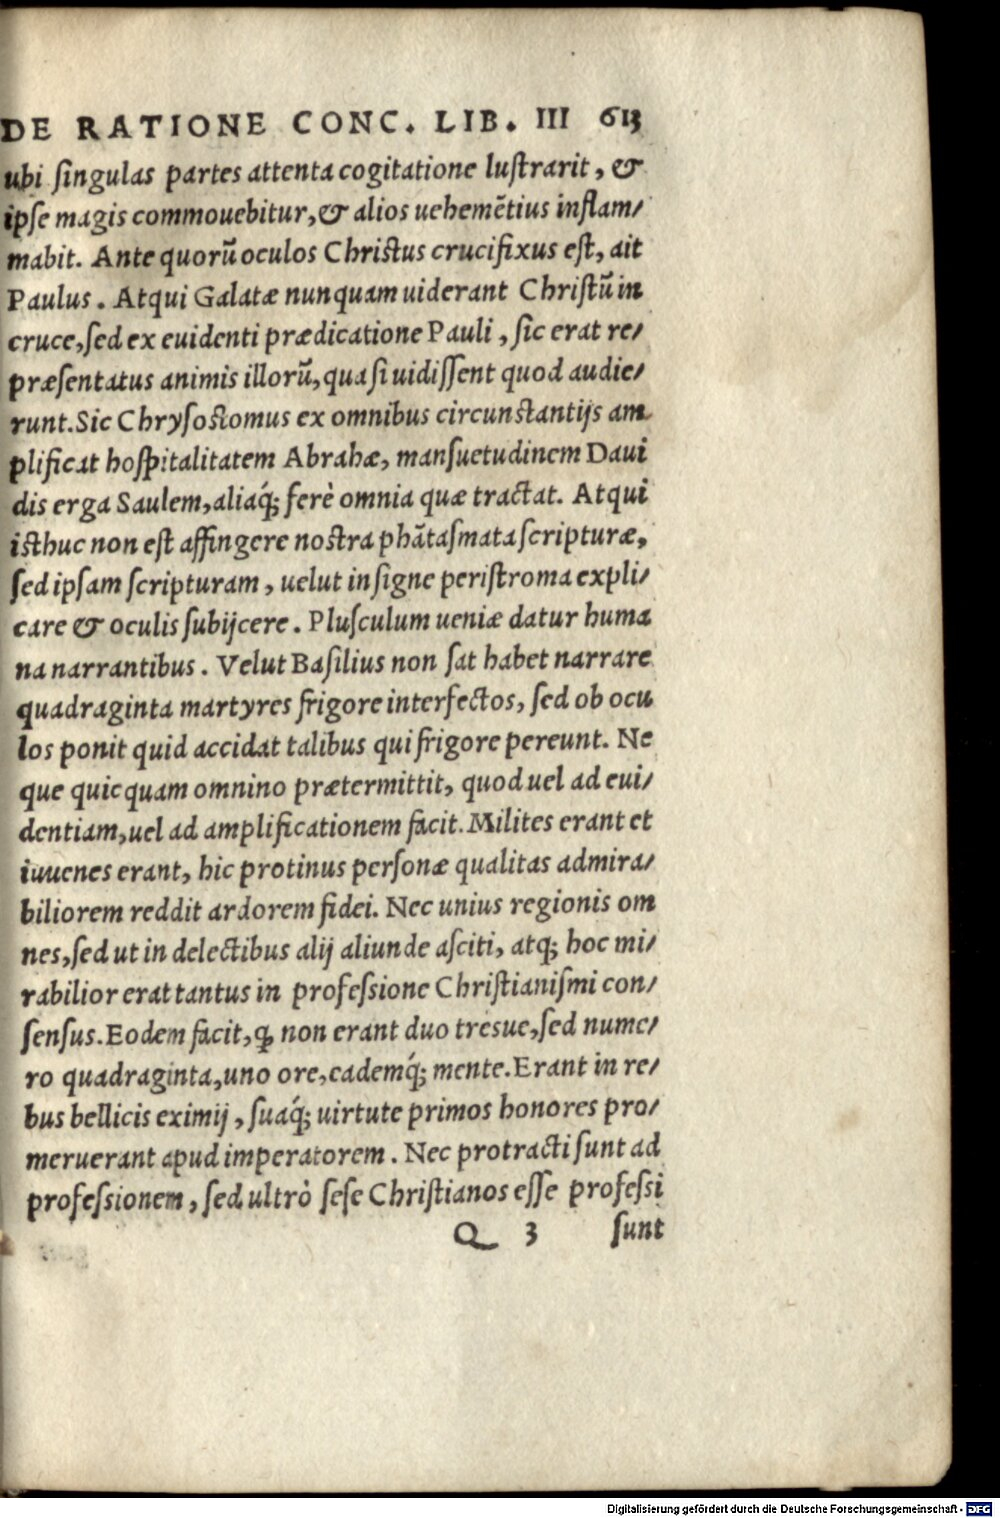 DE RATIONE CONC. LIB. III 613
ubi ſingulas partes attenta cogitatione luſtrarit, &
ipſe magis commouebitur, & alios uehemẽtius inflam/
mabit. Ante quorũ oculos Chriſtus crucifixus eſt, ait
Paulus. Atqui Galatæ nunquam uiderant Chriſtũ in
cruce, ſed ex euidenti prædicatione Pauli, ſic erat re/
præſentatus animis illorũ, quaſi uidiſſent quod audie/
runt. Sic Chryſostomus ex omnibus circunstantijs am
plificat hoſpitalitatem Abrahæ, manſuetudinem Daui
dis erga Saulem, aliaq́; ferè omnia quæ tractat. Atqui
isthuc non eſt affingere nostra phãtaſmata ſcripturæ,
ſed ipſam ſcripturam, uelut inſigne periſtroma expli/
care & oculis ſubijcere. Pluſculum ueniæ datur huma
na narrantibus. Velut Baſilius non ſat habet narrare
quadraginta martyres frigore interfectos, ſed ob ocu
los ponit quid accidat talibus qui frigore pereunt. Ne
que quicquam omnino prætermittit, quod uel ad eui/
dentiam, uel ad amplificationem facit. Milites erant et
iuuenes erant, hic protinus perſonæ qualitas admira/
biliorem reddit ardorem fidei. Nec unius regionis om
nes, ſed ut in delectibus alij aliunde aſciti, atq; hoc mi/
rabilior erat tantus in profeſsione Chriſtianiſmi con/
ſenſus. Eodem facit, ꝙ non erant duo tresue, ſed nume/
ro quadraginta, uno ore, eademq́; mente. Erant in re/
bus bellicis eximij, ſuaq́; uirtute primos honores pro/
meruerant apud imperatorem. Nec protracti ſunt ad
profeſsionem, ſed ultrò ſeſe Chriſtianos eſſe profeſsi
Q 3 ſunt
Digitalisierung gefördert durch die Deutsche Forschungsgemeinschaft - DFG